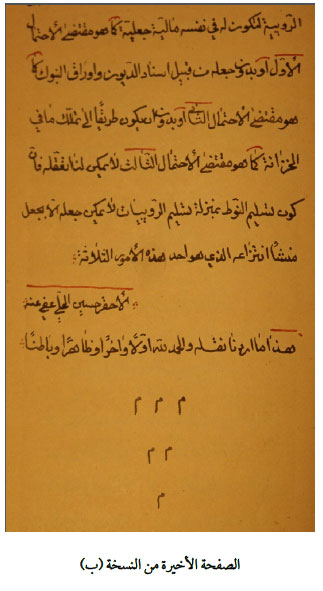 الروبية لتكون له في نفسه مالية جعلية كما هو مقتضى الاحتمال
الأول أو بدون جعله من قبيل اسناد الديون واوراق النبوك كما
هو مقتضى الاحتمال الثاني أو بدون ان يكون طريقًا الى تملك ما في
الخزانة كما هو مقتضى الاحتمال الثالث لا يمكن لنا تعقله فان
كون تسليم النوط بمنزلة تسليم الروبيات لا يمكن جعله الا بجعل
منشأ انتزاعه الذي هو احد هذه الأمور الثلاثة
الأحقر حسين الحلي عفي عنه
هذا ما اردنا نقله والحمد لله اولًا واخرًا وظاهرًا وباطنًا
م م م
م م
م
الصفحة الأخيرة من النسخة (ب)